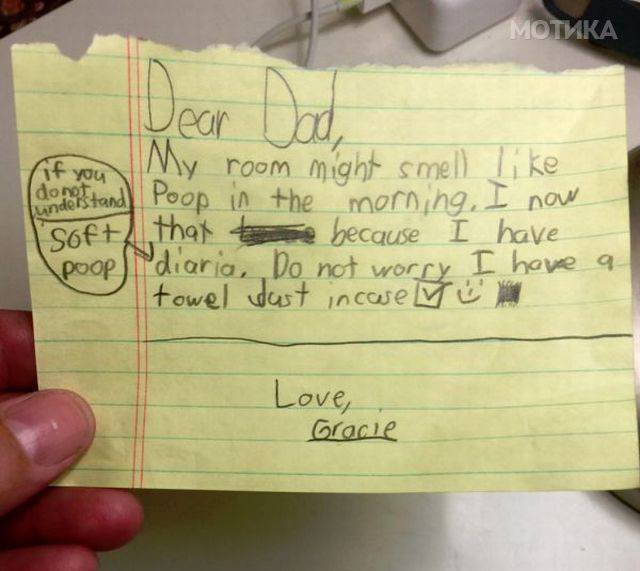 МОТИКА
Dear Dad,
My room might smell like
Poop in the morning. I now
that because I have
diaria. Do not worry I have a
towel Just incase
if you
do not
understand
soft
poop
Love,
Gracie